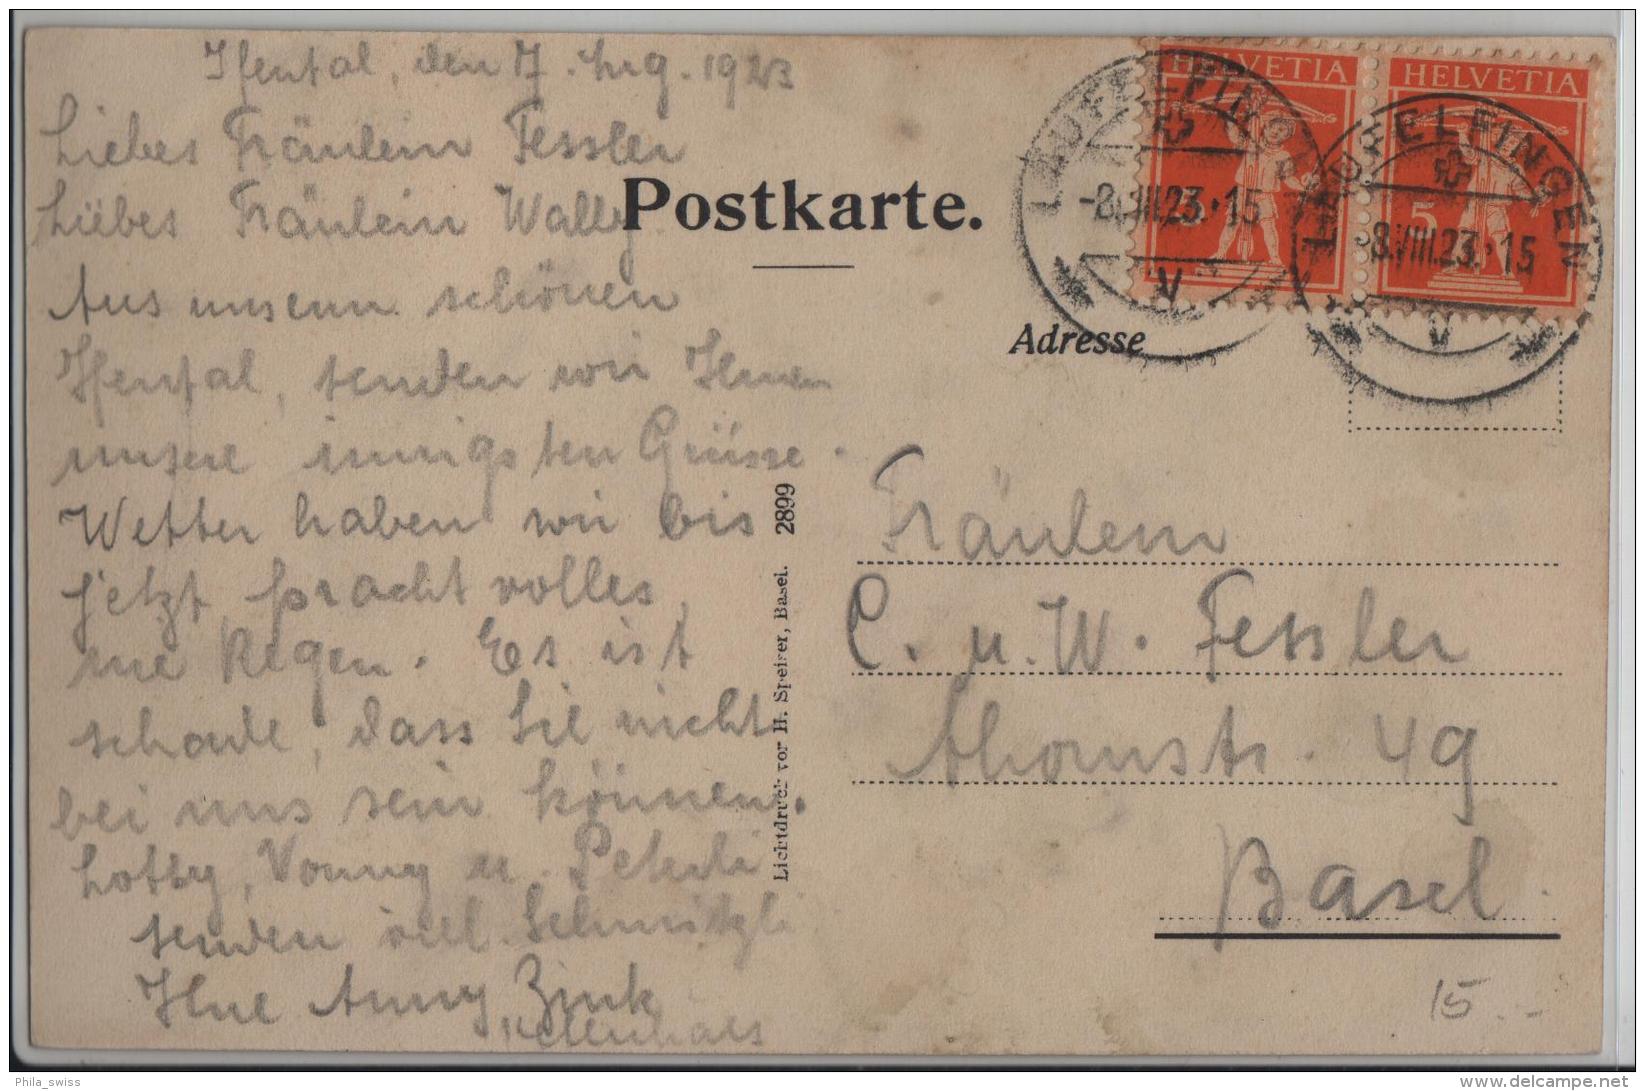 Ifental, den 7. Aug. 1923
Liebes Fräulein Fessler
Liebes Fräulein Wally.
Aus unserm schönen
Ifental, senden wir Ihnen
unsere innigsten Grüsse.
Wetter haben wir bis
jetzt prachtvolles,
nie Regen. Es ist
schade, dass Sie nicht
bei uns sein können.
Lotty, Vonny u. Peterli
senden viel Schmützli
Ihre Anny Zink
Postkarte.
Adresse
HELVETIA
HELVETIA
5
LÄUFELFINGEN
-8.VIII.23.-15
V
LÄUFELFINGEN
-8.VIII.23.-15
V
Lichtdruck von H. Speiser, Basel. 2899
Fräulein
C. u. W. Fessler
Ahornstr. 49
Basel.
15.-
Phila_swiss
delcampe.net